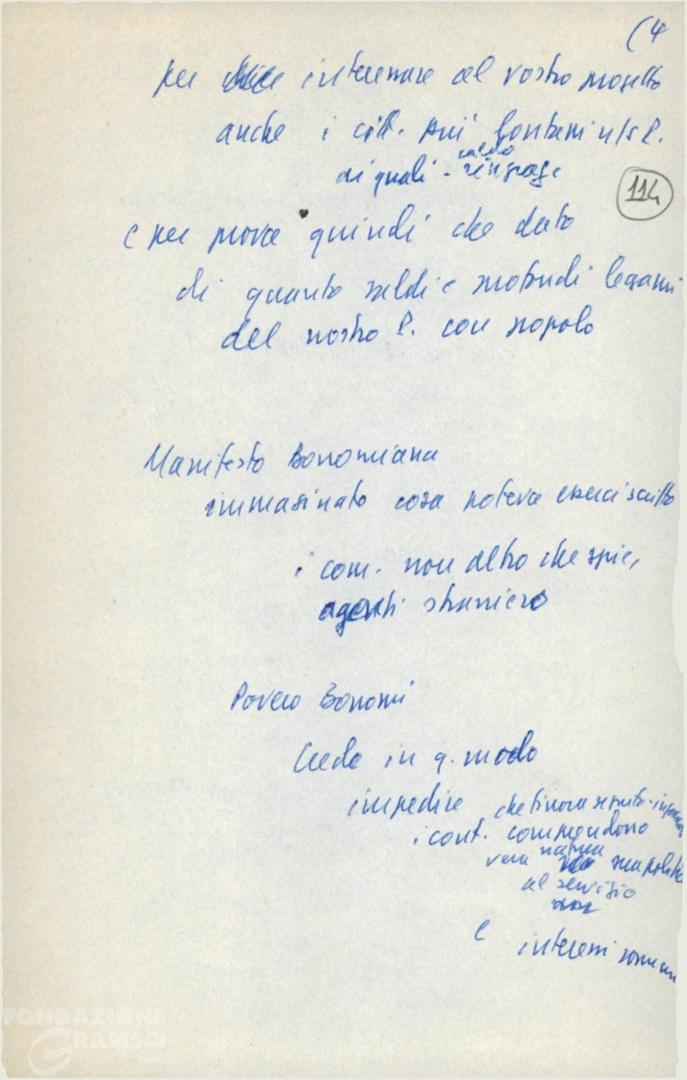 (4
per interessare al vostro progetto
anche i citt. più lontani n/s P.
ai quali - saldo
114
e per prova quindi che dato
di quanto saldi e profondi legami
del nostro P. con popolo
Manifesto Bonomiana
immaginato cosa poteva esserci scritto
i com. non altro che spie,
agenti straniero
Povero Bonomi
Crede in q. modo
impedire che finora seguito
i cont. comprendono
vera natura sua politica
al servizio
e interessi
FONDAZIONE
GRAMSCI